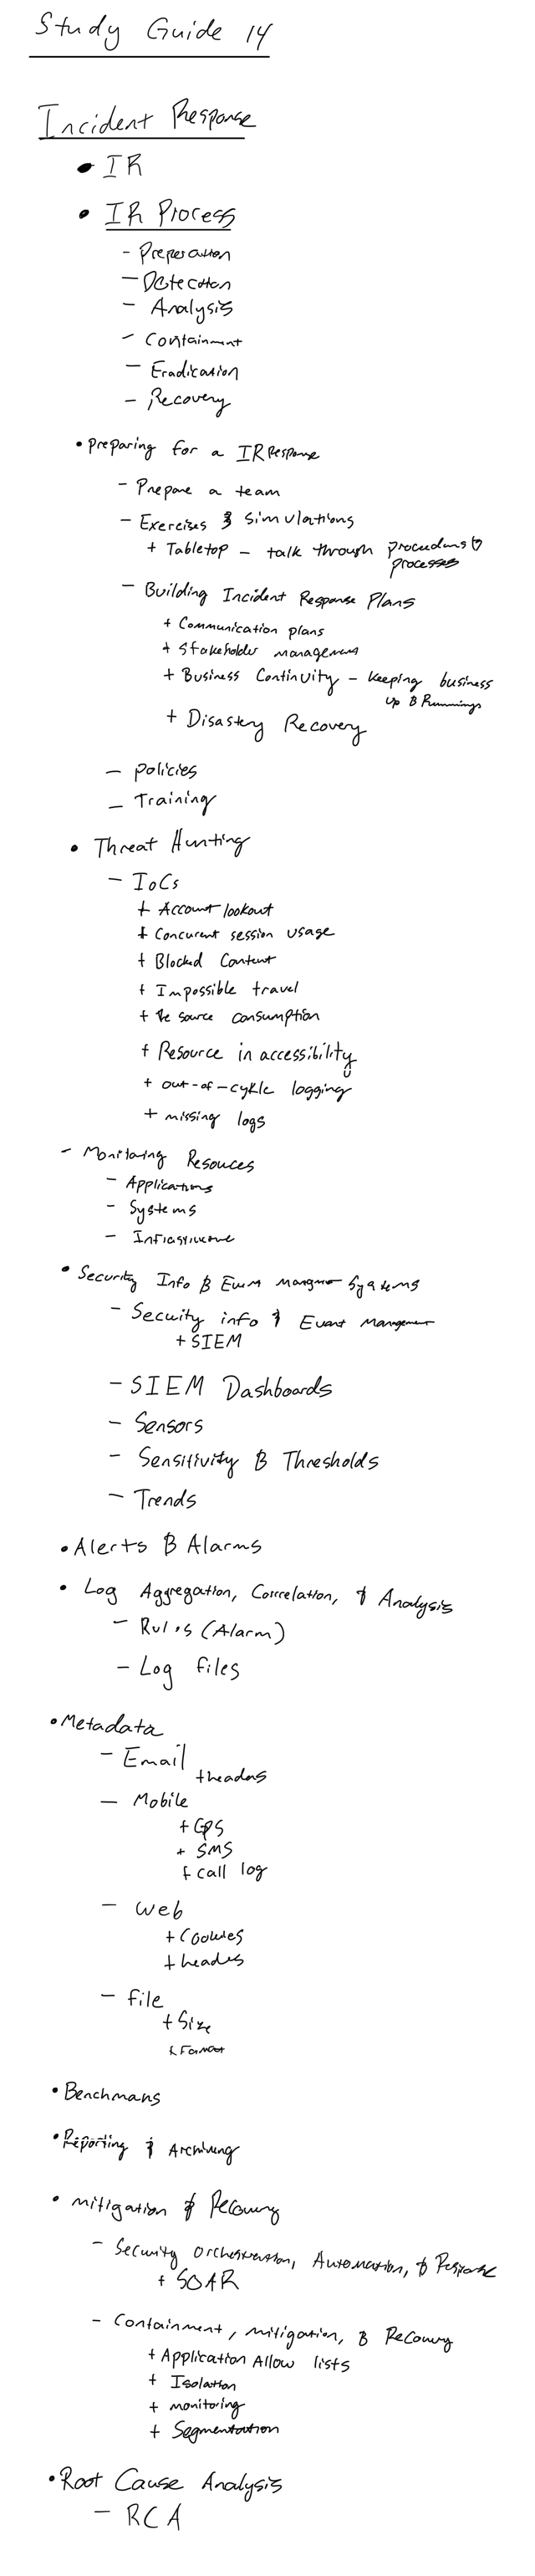 Study Guide 14
Incident Response
• IR
• IR Process
- Preperation
- Detection
- Analysis
- Containment
- Eradication
- Recovery
• Preparing for a IR Response
- Prepare a team
- Exercises & Simulations
+ Tabletop - talk through procedures &
processes
- Building Incident Response Plans
+ Communication plans
+ Stakeholder management
+ Business Continuity - keeping business
up & Runnings
+ Disastery Recovery
- Policies
- Training
• Threat Hunting
- IoCs
+ Account lookout
+ Concurent session usage
+ Blocked Content
+ Impossible travel
+ Re source consumption
+ Resource in accessibility
+ out-of-cykle logging
+ missing logs
- Monitoring Resouces
- Applications
- Systems
- Infrastructure
• Security Info & Event Mangment Systems
- Secuity info & Event Management
+ SIEM
- SIEM Dashboards
- Sensors
- Sensitivity & Thresholds
- Trends
• Alerts & Alarms
• Log Aggregation, Correlation, & Analysis
- Rules (Alarm)
- Log files
• Metadata
- Email
+ headers
- Mobile
+ GPS
+ SMS
+ call log
- Web
+ Cookies
+ headers
- file
+ Size
+ Format
• Benchmarks
• Reporting & Archiving
• Mitigation & Recovery
- Security Orchestration, Automation, & Response
+ SOAR
- Containment, mitigation, & Recovery
+ Application Allow lists
+ Isolation
+ monitoring
+ Segmentation
• Root Cause Analysis
- RCA